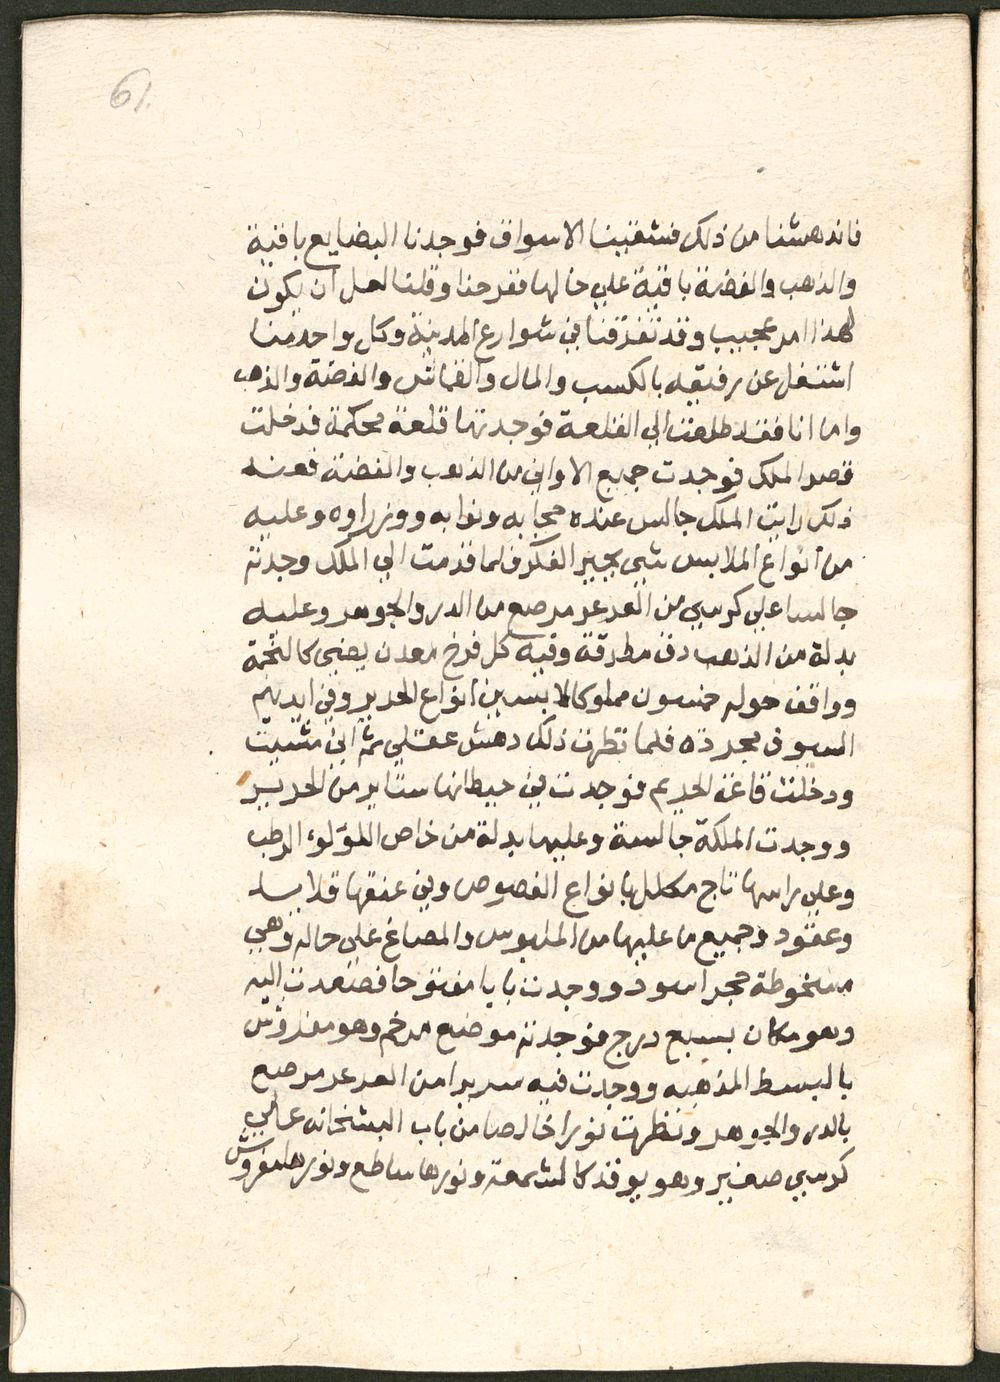 61.
فاندهشنا من ذلك فشقينا الاسواق فوجدنا البضايع باقية
والذهب والفضة باقية علي حالها ففرحنا وقلنا لعل ان يكون
لهذا امر عجيب وقد تفرقنا في شوارع المدينة وكل واحد منا
اشتغل عن رفيقه بالكسب والمال والقماش والفضة والذهب
واما انا فقد طلعت الي القلعة فوجدتها قلعة محكمة فدخلت
قصر الملك فوجدت جميع الاواني من الذهب والفضة فعند
ذلك رايت الملك جالس عنده حجابه ونوابه ووزراوه وعليه
من انواع الملابس شي يحير الفكر فلما قدمت الي الملك وجدته
جالسا علي كرسي من مرصع من الدر والجوهر وعليه
بدلة من الذهب مطرقة وفيه كل معدن يضي كالنجمة
وواقف حوله خمسون مملوكا لابسين انواع الحرير وفي ايديهم
السيوف مجردة فلما نظرت ذلك دهش عقلي ثم اني مشيت
ودخلت قاعة الحريم فوجدت في حيطانها ستاير من الحرير
ووجدت الملكة جالسة وعليها بدلة من خاص اللؤلوء الرطب
وعلي راسها تاج مكلل بانواع الفصوص وفي عنقها قلايد
وعقود وجميع ما عليها من الملبوس والمصاغ علي حاله وهي
مسخوطة حجر اسود ووجدت بابا مفتوحا فصعدت اليه
وهو مكان بسبع درج فوجدته موضع مرخم وهو مفروش
بالبسط المذهبه ووجدت فيه سريرا من مرصع
بالدر والجوهر ونظرت نورا خالصا من باب البشخانه عالي
كرسي صغير وهو يوقد كالشمعة ونورها ساطع